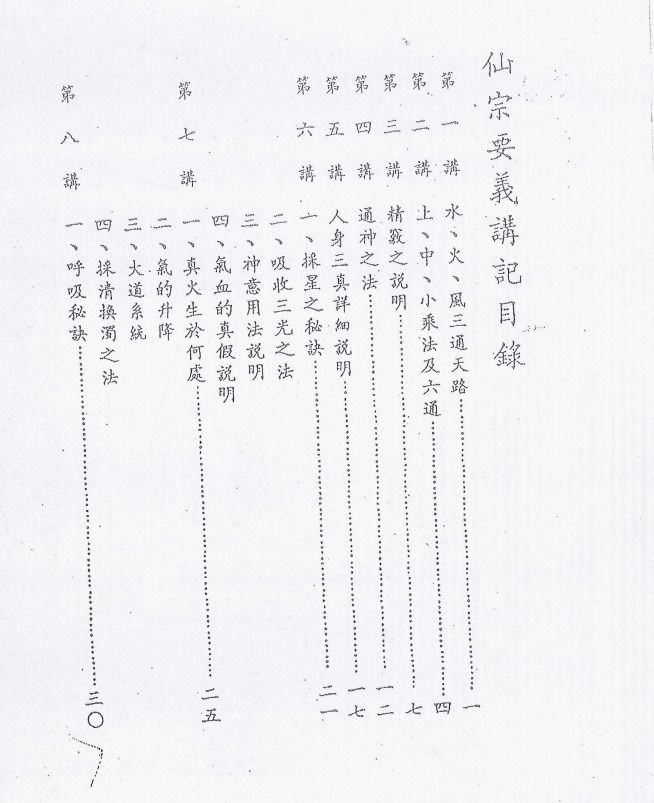 仙宗要義講記目錄
第一講 水、火、風三通天路……一
第二講 上、中、小乘法及六通……四
第三講 精竅之説明……七
第四講 通神之法……一二
第五講 人身三真詳細説明……一七
第六講 一、採星之秘訣……二一
二、吸收三光之法
三、神意用法説明
四、氣血的真假説明
第七講 一、真火生於何處……二五
二、氣的升降
三、大道系統
四、採清換濁之法
第八講 一、呼吸秘訣……三〇